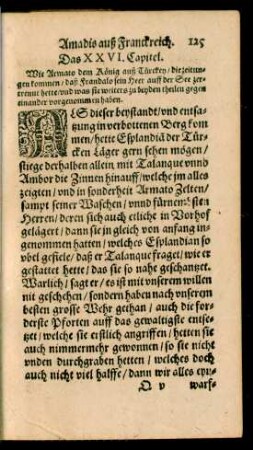 Amadis auß Franckreich. 125
Das XXVI. Capitel.
Wie Armato dem König auß Türckey, die zeitun-
gen kommen, daß Frandalo sein Heer auff der See zer-
trennt hette, und was sie weiters zu beyden theilen gegen
einander vorgenommen haben.
ALs dieser beystandt, vnd entsa-
tzung in verbottenen Berg kom
men, hette Esplandiā der Tür-
cken Läger gern sehen mögen,
stiege derhalben allein mit Talanque vnnd
Ambor die Zinnen hinauff, welche jm alles
zeigten, vnd in sonderheit Armato Zelten,
sampt seiner Waschen, vnnd fürnem̄ sten
Herren, deren sich auch etliche in Vorhof
gelägert, dann sie jn gleich von anfang in-
genommen hatten, welches Esplandian so
vbel gefiele, daß er Talanque fraget, wie er
gestattet hette, das sie so nahe geschantzet.
Warlich, sagt er, es ist mit vnserem willen
nit geschehen, sondern haben nach vnserem
besten grosse Wehr gethan, auch die for-
derste Pforten auff das gewaltigste entse-
tzt, welche sie erstlich angriffen, hetten sie
auch nimmermehr gewonnen, so sie nicht
vnden durchgraben hetten, welches doch
auch nicht viel halffe, dann wir alles ey-
Q v warf-